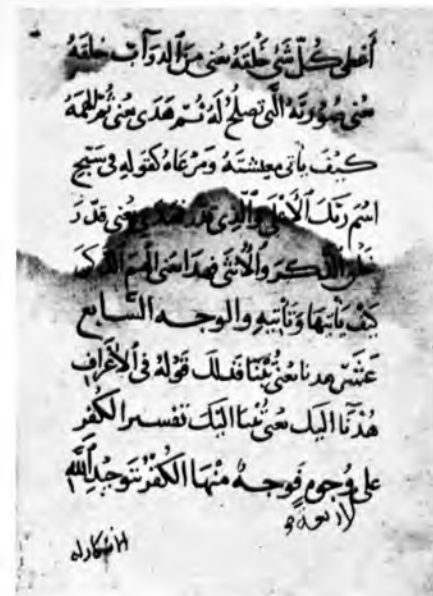 أعطى كل شئ خلقه يعني من الدوآب خلقه
يعني صورته التي تصلح له ثم هدى يعني ثم الهمه
كيف ياتي معيشته ومرعاه كقوله في سبح
اسم ربك الأعلى والذي قدر فهدى يعني قدر
خلق الذكر والأنثى فهدا يعني الهم الذكر
كيف ياتيها وتأتيه والوجه السابع
عشر هدنا يعني تبنا فذلك قوله في الأعراف
هدنآ اليك يعني تبنا اليك تفسير الكفر
على وجوه فوجه منها الكفر بتوحيد الله
اربعة